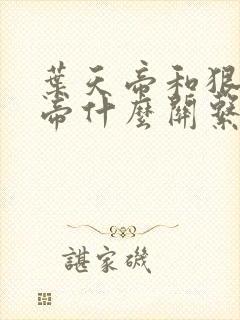 葉天帝和狠
帝什麼關繫
諶家磯